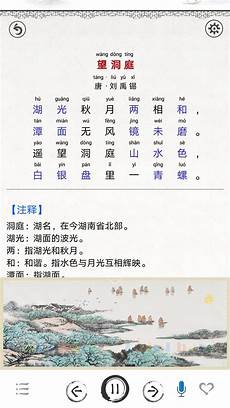 wàng dòng tíng
望洞庭
táng · liú yǔ xī
唐 · 刘禹锡
hú guāng qiū yuè liǎng xiāng hé
湖光秋月两相和，
tán miàn wú fēng jìng wèi mó
潭面无风镜未磨。
yáo wàng dòng tíng shān shuǐ sè
遥望洞庭山水色，
bái yín pán lǐ yì qīng luó
白银盘里一青螺。
【注释】
洞庭：湖名，在今湖南省北部。
湖光：湖面的波光。
两：指湖光和秋月。
和：和谐。指水色与月光互相辉映。
潭面：指湖面。